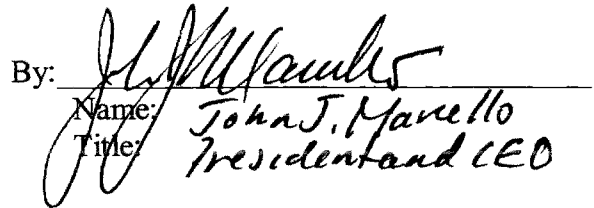 By:
Name: John J. Manello
Title: President and CEO